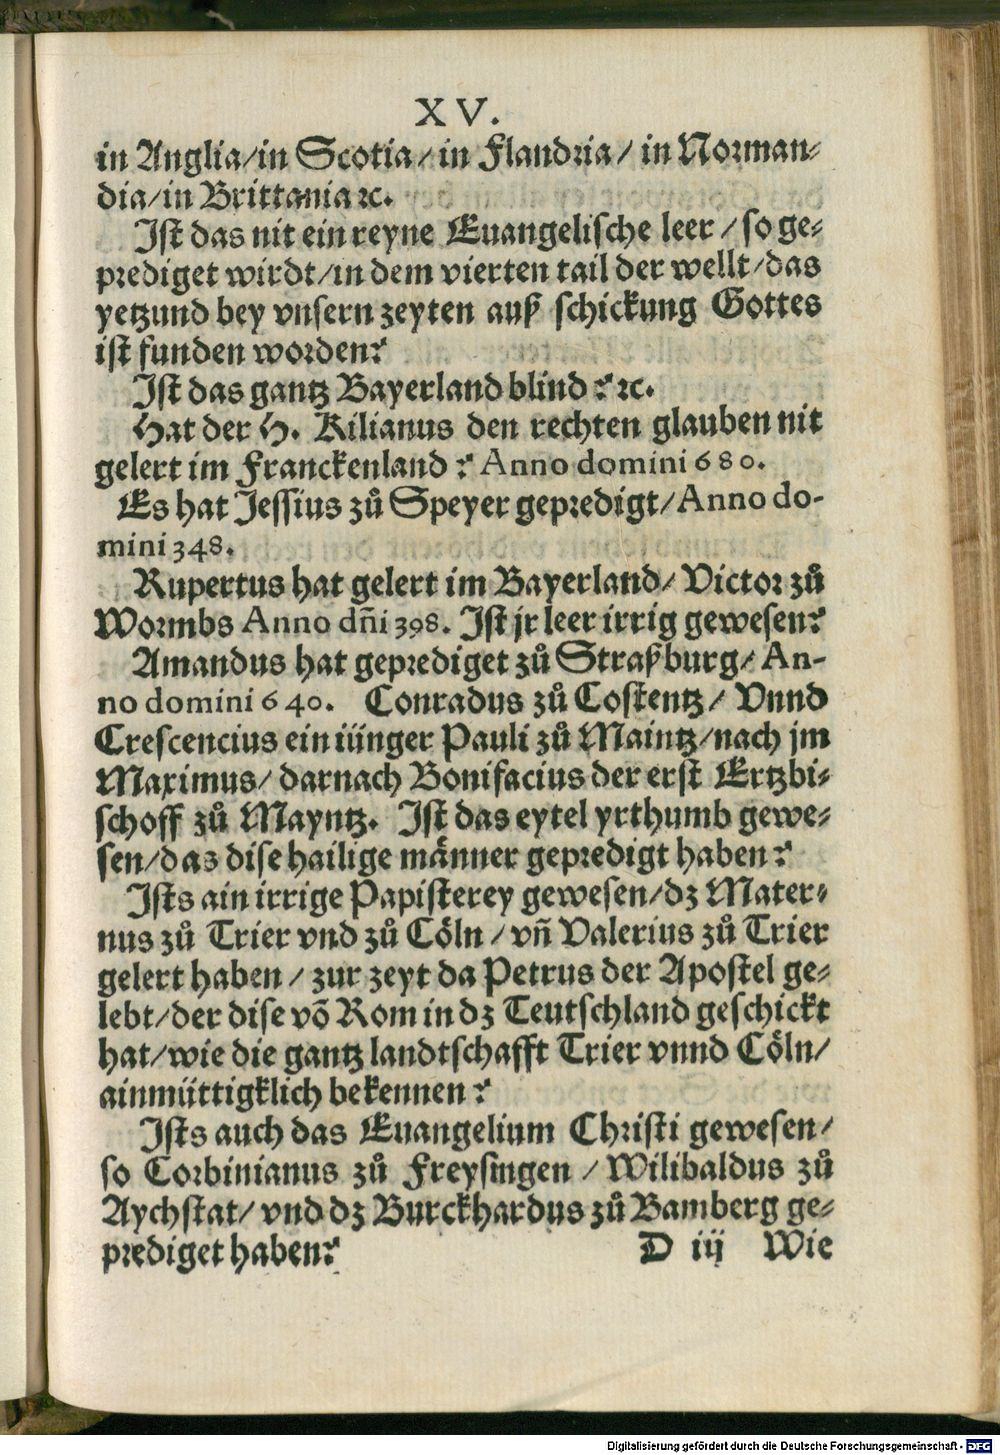 XV.
in Anglia/in Scotia/in Flandria/in Norman⸗
dia/in Brittania ꝛc.
Ist das nit ein reyne Euangelische leer/so ge⸗
prediget wirdt/in dem vierten tail der wellt/das
yetzund bey vnsern zeyten auß schickung Gottes
ist funden worden?
Ist das gantz Bayerland blind? ꝛc.
Hat der H. Kilianus den rechten glauben nit
gelert im Franckenland? Anno domini 680.
Es hat Jessius zů Speyer gepredigt/Anno do-
mini 348.
Rupertus hat gelert im Bayerland/Victor zů
Wormbs Anno dñi 398. Ist jr leer irrig gewesen?
Amandus hat geprediget zů Straßburg/An-
no domini 640. Conradus zů Costentz/Vnnd
Crescencius ein iünger Pauli zů Maintz/nach jm
Maximus/darnach Bonifacius der erst Ertzbi⸗
schoff zů Mayntz. Ist das eytel yrthumb gewe⸗
sen/das dise hailige männer gepredigt haben?
Ists ain irrige Papisterey gewesen/dz Mater⸗
nus zů Trier vnd zů Cöln/vñ Valerius zů Trier
gelert haben/zur zeyt da Petrus der Apostel ge⸗
lebt/der dise võ Rom in dz Teutschland geschickt
hat/wie die gantz landtschafft Trier vnnd Cöln/
ainmüttigklich bekennen?
Ists auch das Euangelium Christi gewesen/
so Corbinianus zů Freysingen/Wilibaldus zů
Aychstat/vnd dz Burckhardus zů Bamberg ge⸗
prediget haben?
D iij Wie
Digitalisierung gefördert durch die Deutsche Forschungsgemeinschaft - DFG